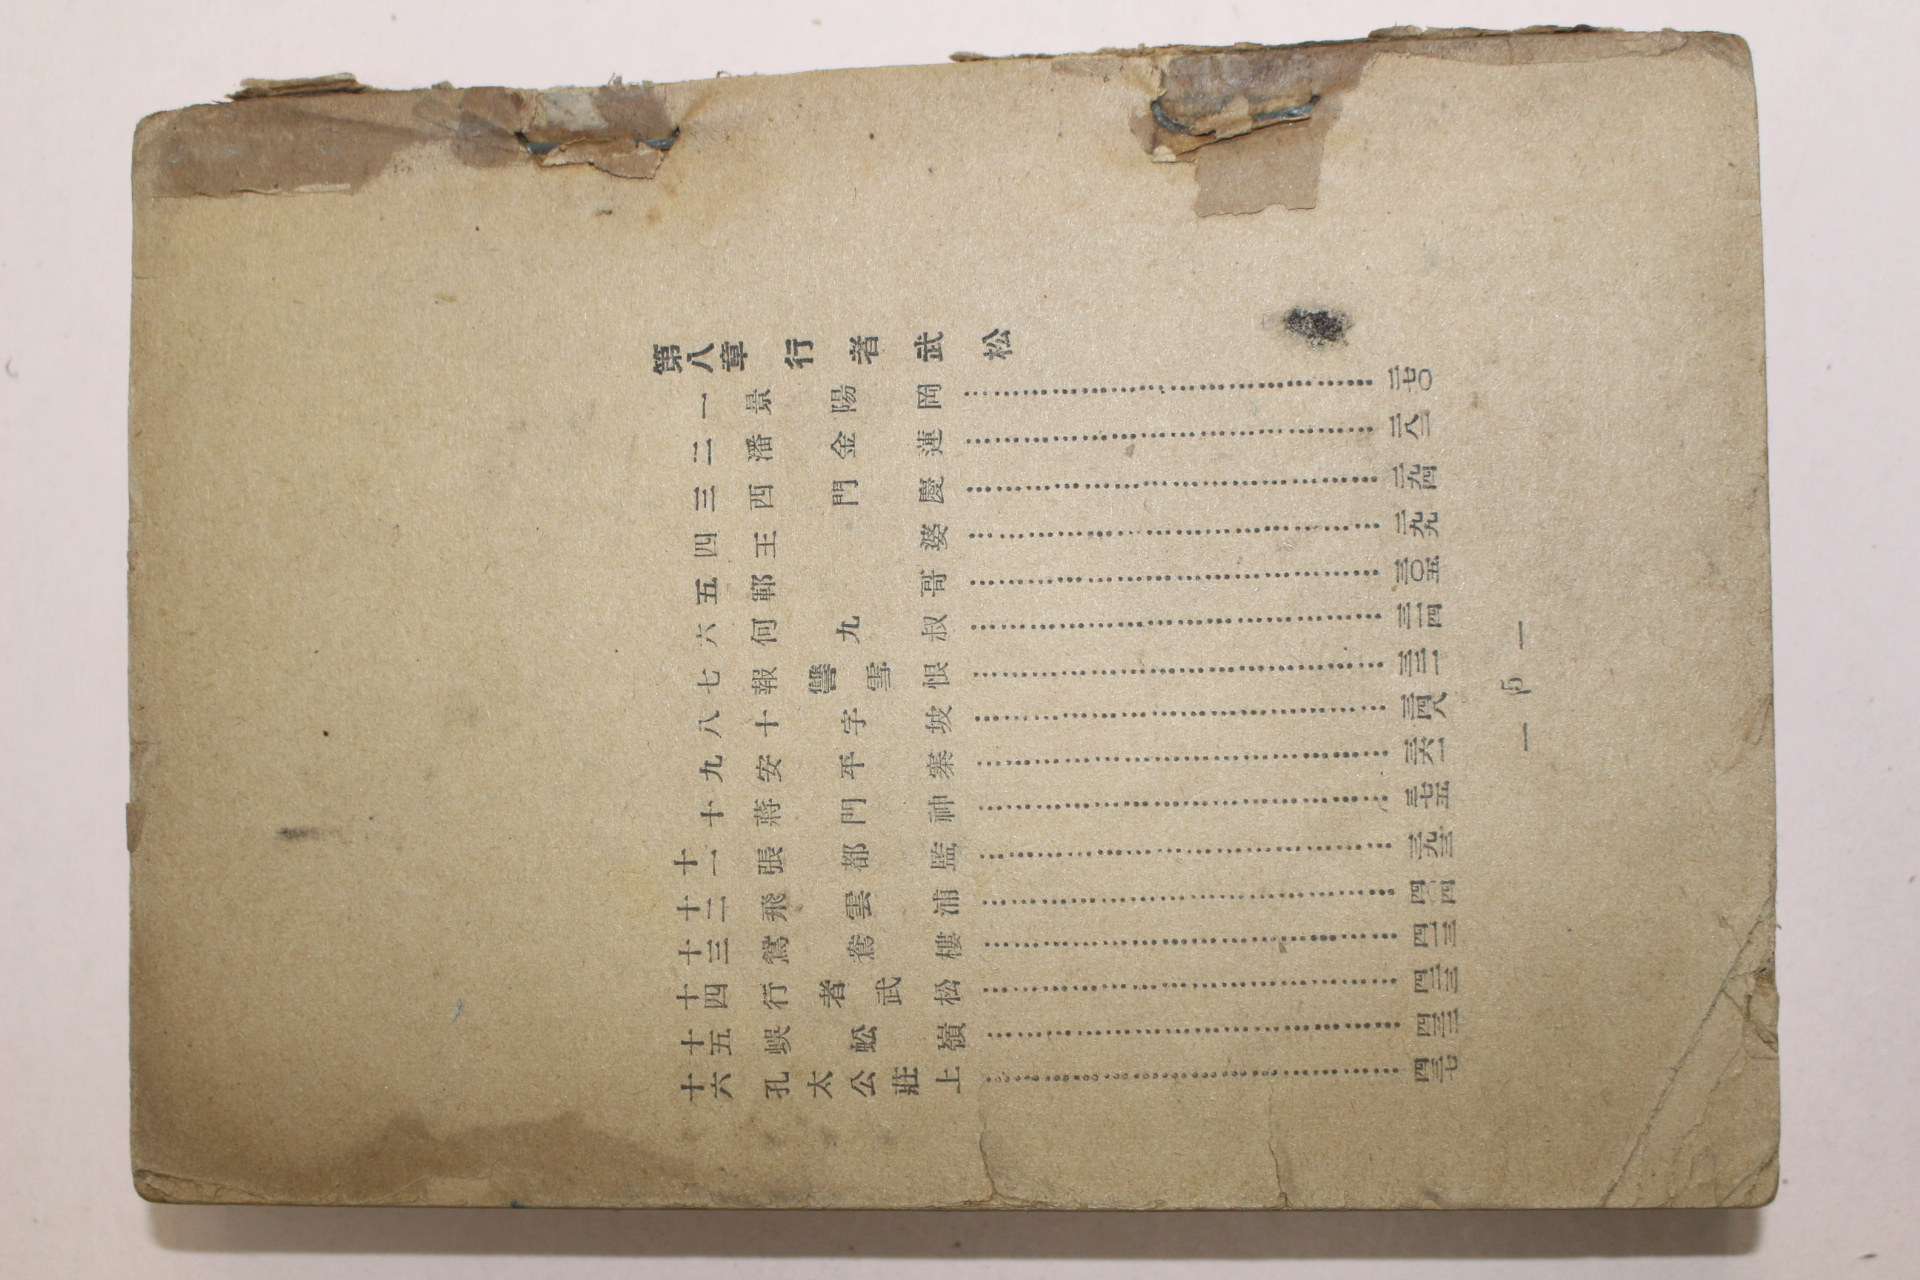 第八章 行者武松
一 景陽岡 二七〇
二 潘金蓮 二八三
三 西門慶 二九四
四 王婆 二九九
五 鄆哥 三〇五
六 何九叔 三一四
七 報讐雪恨
八 十字坡 三四八
九 安平寨 三六一
十 蔣門神 三七五
十一 張都監 三九三
十二 飛雲浦 四〇四
十三 鴛鴦樓 四一三
十四 行者武松
十五 蜈蚣嶺
十六 孔太公莊上 四三七
— 5 —